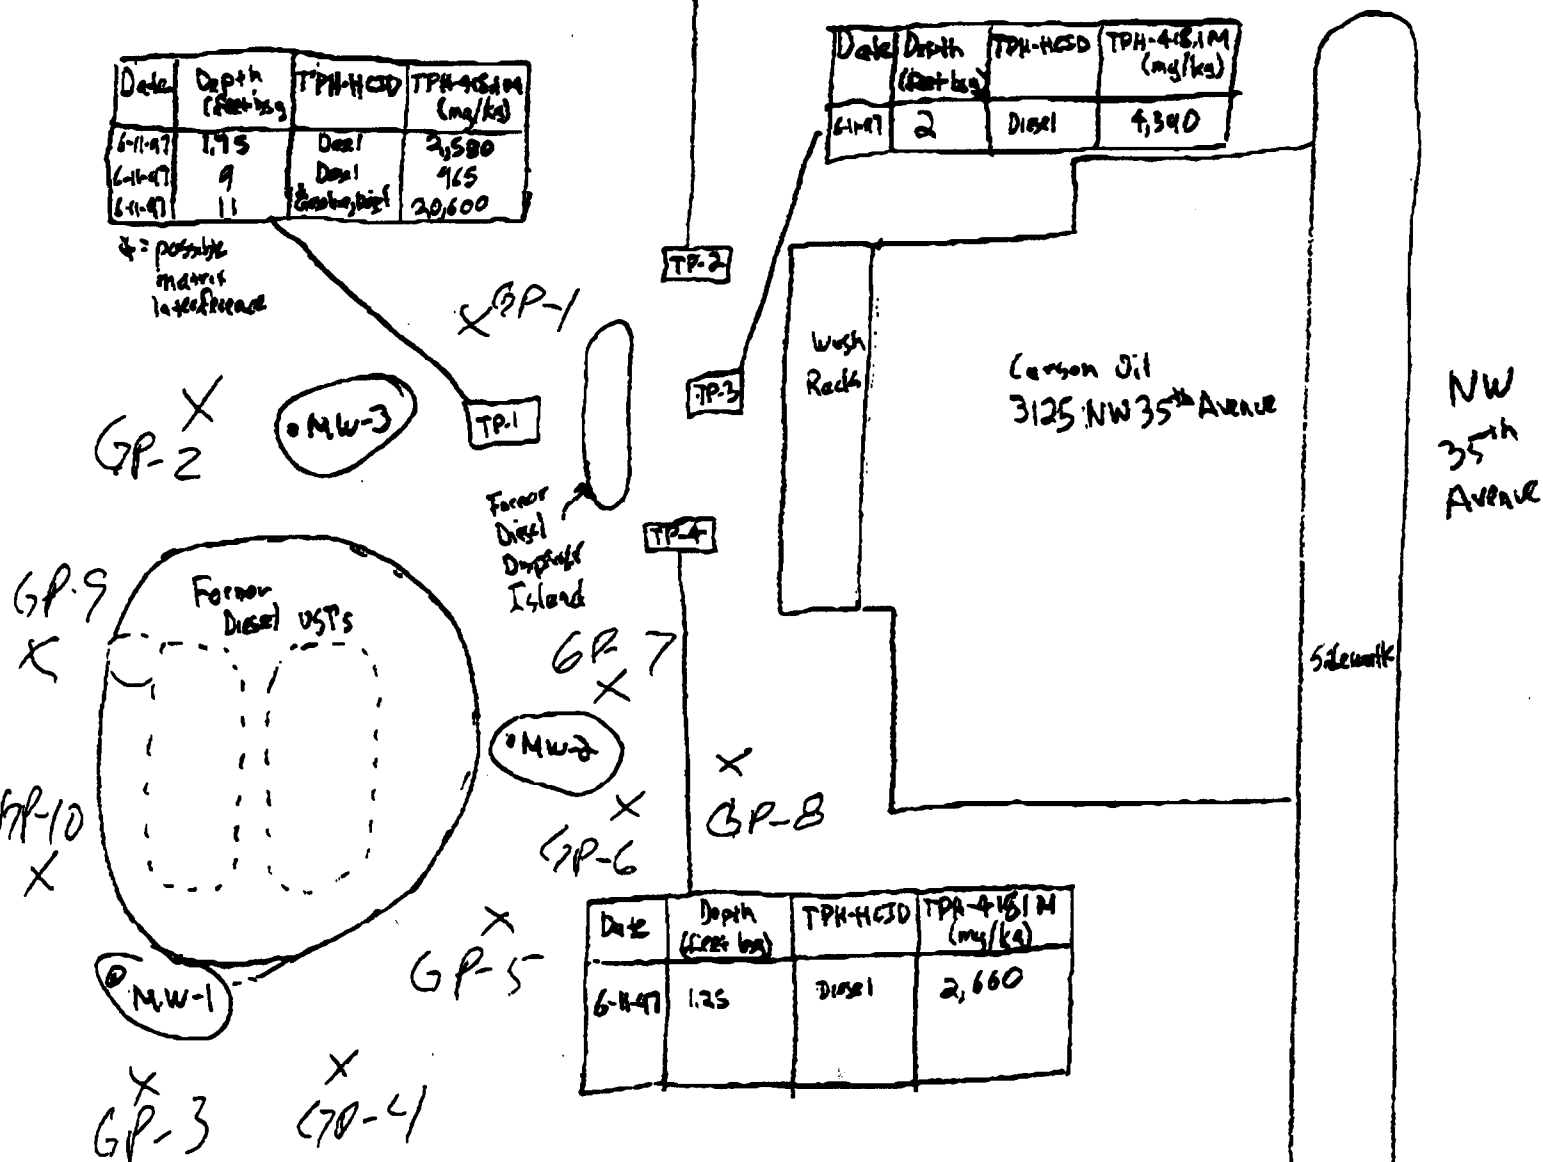 Date Depth (feet bsg TPH-HCID TPH-418.1M (mg/kg)
6-11-97 1.75 Diesel 2,580
6-11-97 9 Diesel 965
6-11-97 11 *Gasoline, Diesel 20,600
* = possible
matrix
interference
Date Depth (feet bsg) TPH-HCID TPH-418.1M (mg/kg)
6-11-97 2 Diesel 4,390
TP-2
GP-1
TP-3
TP-1
MW-3
GP-2
Wash
Rack
Carson Oil
3125 NW 35th Avenue
NW
35th
Avenue
Former
Diesel
Island
TP-4
GP-9
Former
Diesel USTs
GP-7
Sidewalk
MW-2
GP-10
GP-8
GP-6
GP-5
MW-1
GP-3
GP-4
Date Depth (feet bsg) TPH-HCID TPH-418.1M (mg/kg)
6-11-97 1.25 Diesel 2,660